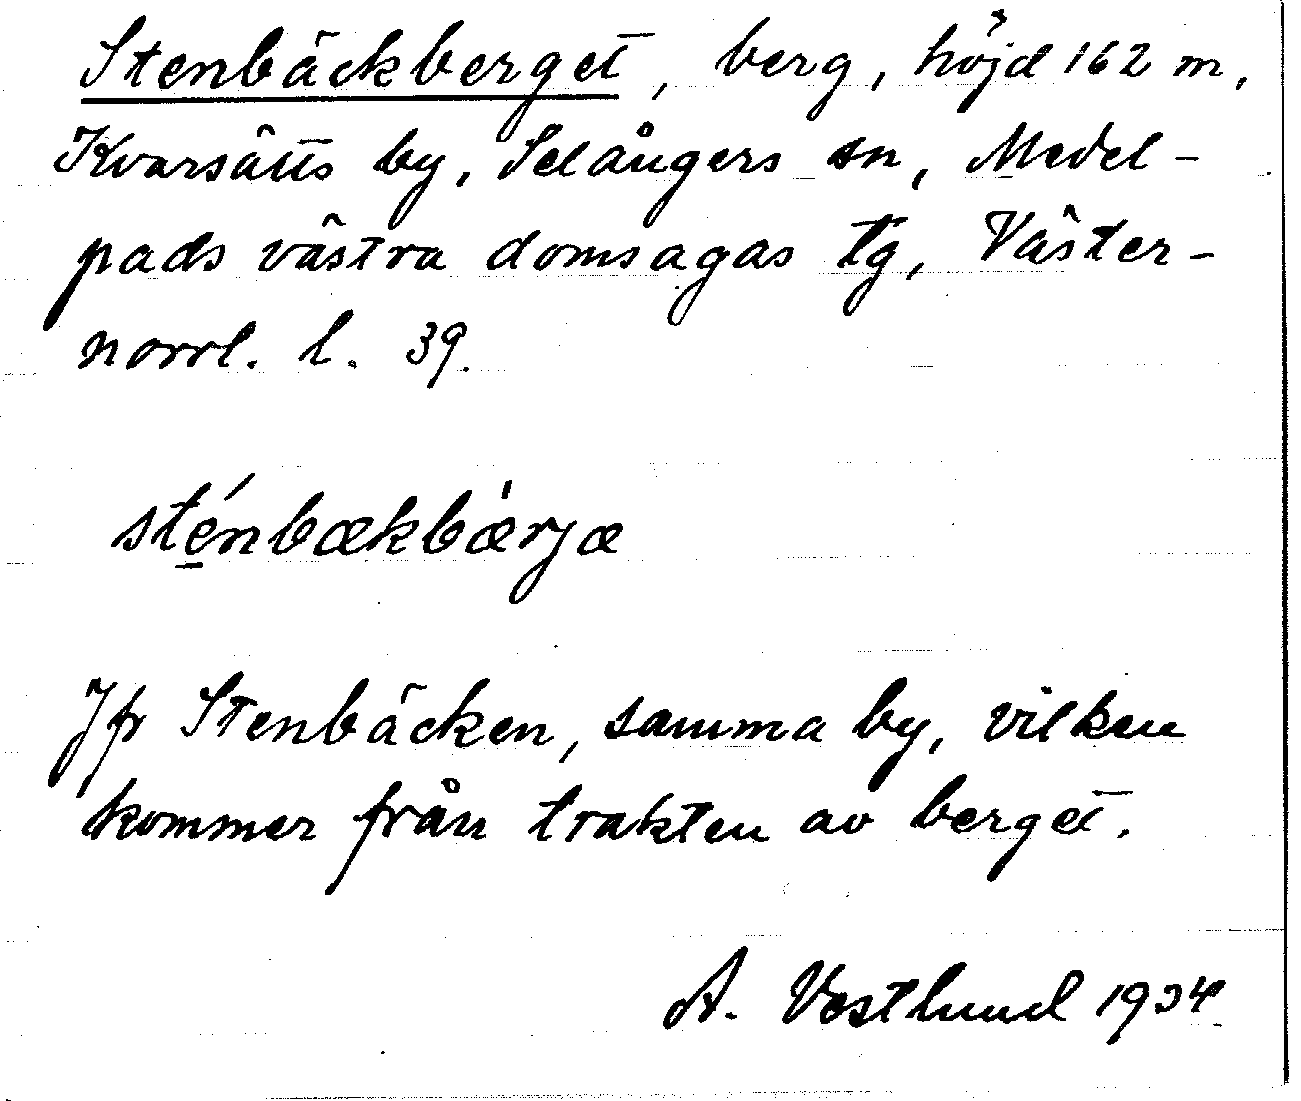 Stenbäckberget, berg, höjd 162 m,
Kvarsätts by, Selångers sn, Medel-
pads västra domsagas tg, Väster-
norrl. l. 39.
sté̱nbækbæ̀rjæ
Jfr Stenbäcken, samma by, vilken
kommer från trakten av berget.
A. Vestlund 1934